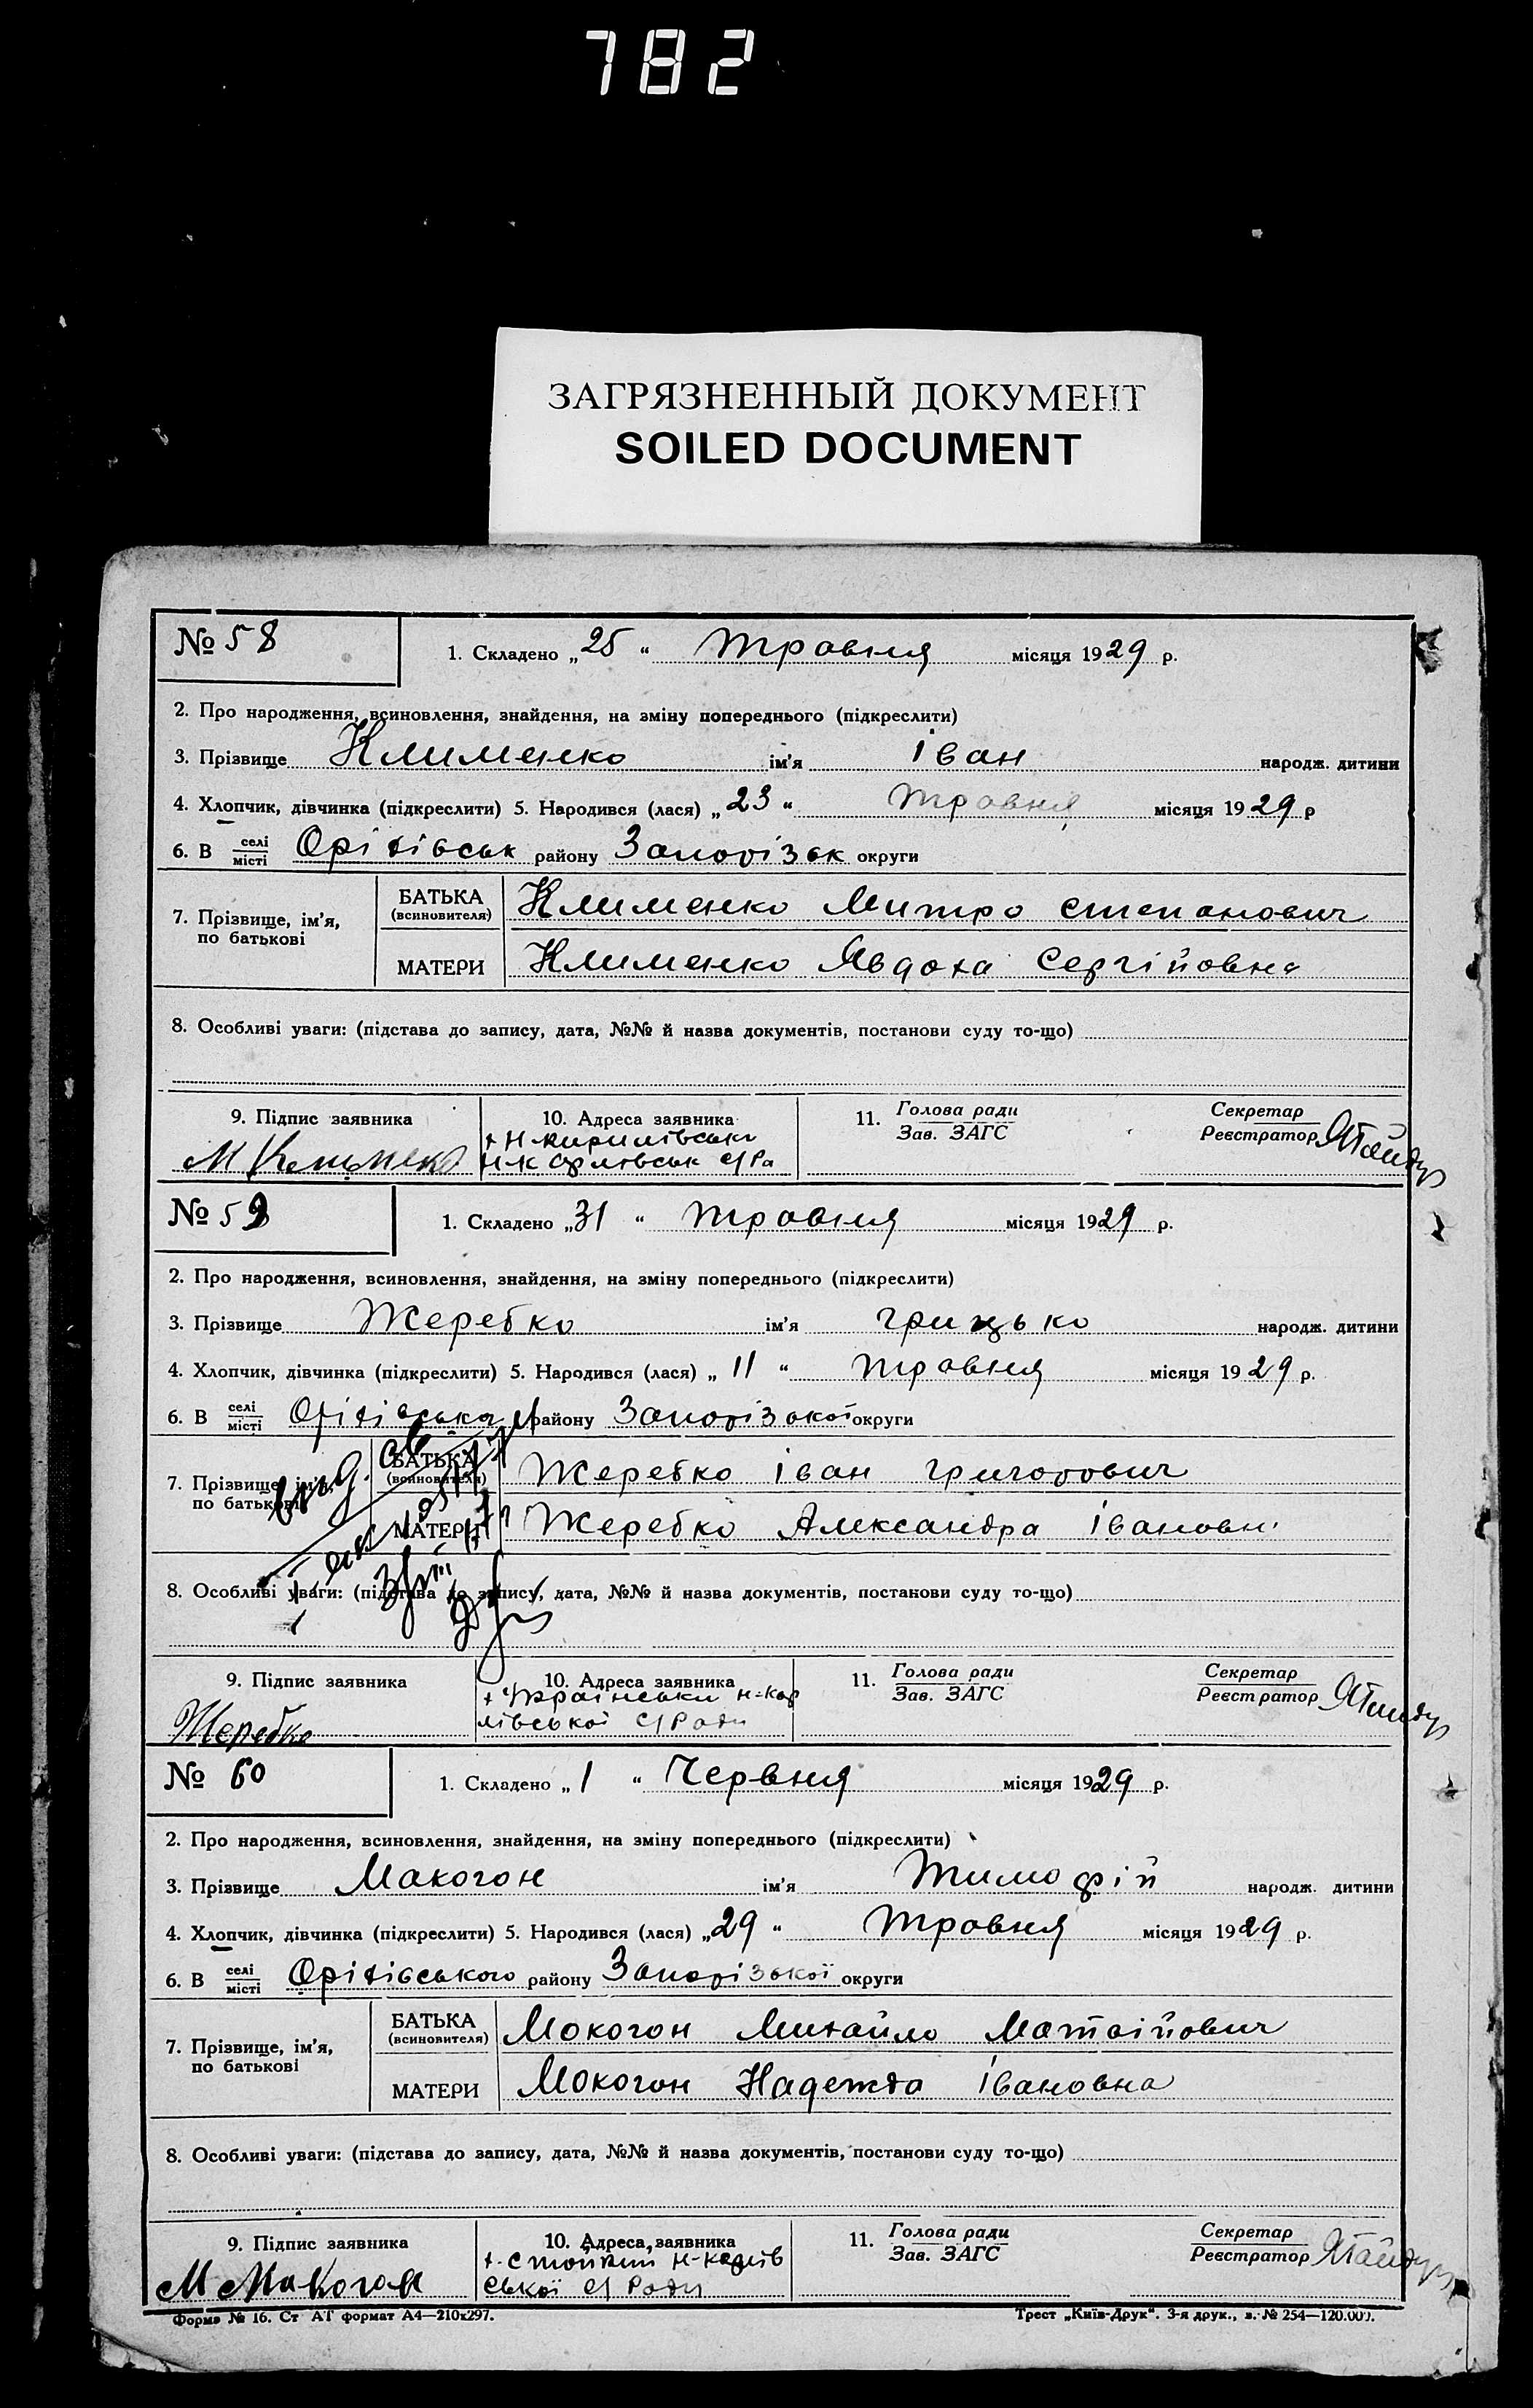 782
ЗАГРЯЗНЕННЫЙ ДОКУМЕНТ
SOILED DOCUMENT
№ 58
1. Складено „25“ травня місяця 1929 р.
2. Про народження, всиновлення, знайдення, на зміну попереднього (підкреслити)
3. Прізвище Клименко ім’я Іван народж. дитини
4. Хлопчик, дівчинка (підкреслити) 5. Народився (лася) „23“ травня місяця 1929 р
6. В селі місті Оріхівськ району Запорізьк округи
7. Прізвище, ім’я, по батькові
БАТЬКА (всиновителя) Клименко Митро степанович
МАТЕРИ Клименко Явдоха Сергійовна
8. Особливі уваги: (підстава до запису, дата, №№ й назва документів, постанови суду то-що)
9. Підпис заявника
10. Адреса заявника
11. Голова ради Зав. ЗАГС
Секретар Реєстратор
х Н-кирилівськи
с/Ра
№ 59
1. Складено „31“ травня місяця 1929 р.
2. Про народження, всиновлення, знайдення, на зміну попереднього (підкреслити)
3. Прізвище Жеребко ім’я грицько народж. дитини
4. Хлопчик, дівчинка (підкреслити) 5. Народився (лася) „11“ травня місяця 1929 р.
6. В селі місті Оріхівська району Запорізької округи
7. Прізвище, ім’я, по батькові
БАТЬКА (всиновителя) Жеребко Іван григорович
МАТЕРИ Жеребко Александра Івановн
8. Особливі уваги: (підстава до запису, дата, №№ й назва документів, постанови суду то-що)
9. Підпис заявника
10. Адреса заявника
11. Голова ради Зав. ЗАГС
Секретар Реєстратор
х Українськи н-кар
лівської С/Ради
Жеребко
№ 60
1. Складено „1“ Червня місяця 1929 р.
2. Про народження, всиновлення, знайдення, на зміну попереднього (підкреслити)
3. Прізвище Макогон ім’я Тимофій народж. дитини
4. Хлопчик, дівчинка (підкреслити) 5. Народився (лася) „29“ травня місяця 1929 р.
6. В селі місті Оріхівського району Запорізької округи
7. Прізвище, ім’я, по батькові
БАТЬКА (всиновителя) Мокогон Михайло Матвійович
МАТЕРИ Мокогон Надежда Івановна
8. Особливі уваги: (підстава до запису, дата, №№ й назва документів, постанови суду то-що)
9. Підпис заявника
10. Адреса заявника
11. Голова ради Зав. ЗАГС
Секретар Реєстратор
ської С/Ради
М Макогон
Форма № 16. Ст АТ формат А4—210х297.
Трест „Київ-Друк“. 3-я друк., з. № 254—120.000.